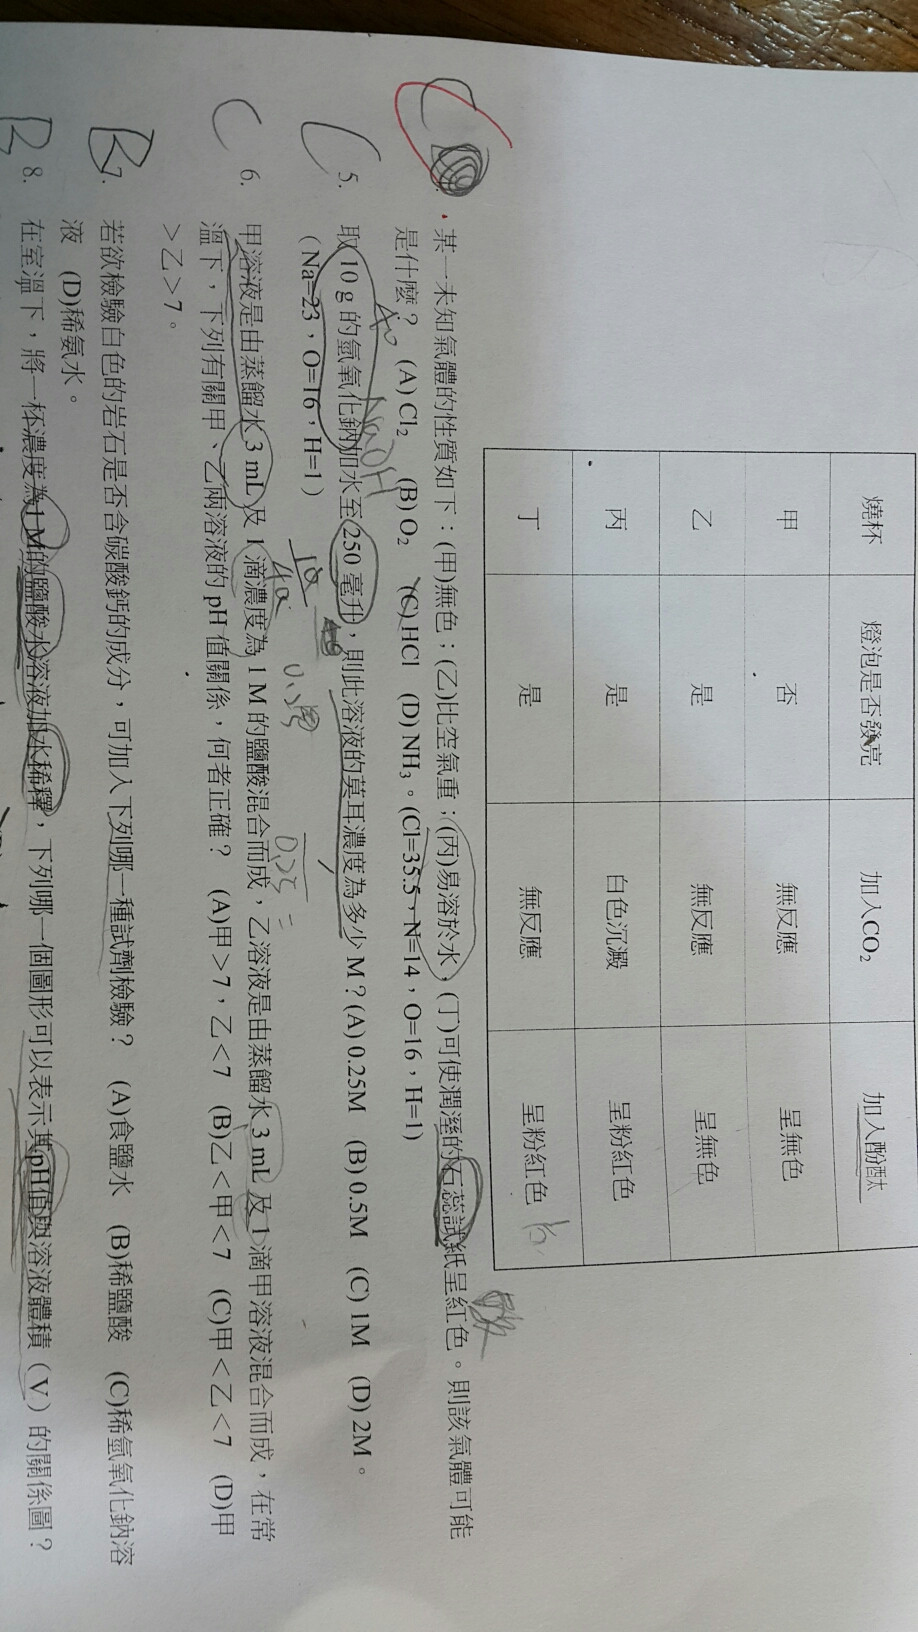 燒杯 燈泡是否發亮 加入CO₂ 加入酚酞
甲 否 無反應 呈無色
乙 是 無反應 呈無色
丙 是 白色沉澱 呈粉紅色
丁 是 無反應 呈粉紅色
C
某一未知氣體的性質如下：(甲)無色；(乙)比空氣重；(丙)易溶於水；(丁)可使潤溼的石蕊試紙呈紅色。則該氣體可能
是什麼？ (A) Cl₂ (B) O₂ (C) HCl (D) NH₃。(Cl=35.5，N=14，O=16，H=1)
NaOH
C 5. 取 10 g 的氫氧化鈉加水至 250 毫升，則此溶液的莫耳濃度為多少 M？(A) 0.25M (B) 0.5M (C) 1M (D) 2M。
(Na=23，O=16，H=1)
10
40
0.25
0.25 =
C 6. 甲溶液是由蒸餾水 3 mL 及 1 滴濃度為 1 M 的鹽酸混合而成，乙溶液是由蒸餾水 3 mL 及 1 滴甲溶液混合而成，在常
溫下，下列有關甲、乙兩溶液的 pH 值關係，何者正確？ (A)甲＞7，乙＜7 (B)乙＜甲＜7 (C)甲＜乙＜7 (D)甲
＞乙＞7。
B 7. 若欲檢驗白色的岩石是否含碳酸鈣的成分，可加入下列哪一種試劑檢驗？ (A)食鹽水 (B)稀鹽酸 (C)稀氫氧化鈉溶
液 (D)稀氨水。
B 8. 在室溫下，將一杯濃度為1 M的鹽酸水溶液加水稀釋，下列哪一個圖形可以表示其pH值與溶液體積（V）的關係圖？